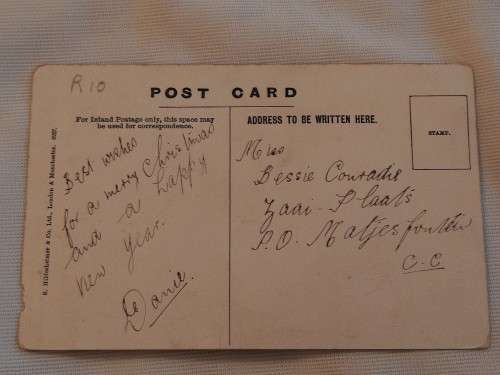 R10
POST CARD
For Inland Postage only, this space may
be used for correspondence.
ADDRESS TO BE WRITTEN HERE.
STAMP.
R. Hildesheimer & Co. Ltd., London & Manchester. 5237.
Best wishes
for a merry Christmas
and a happy
new year.
Danie.
Miss
Bessie Conradie
Zaai-Plaats
P.O. Matjesfontein
C.C